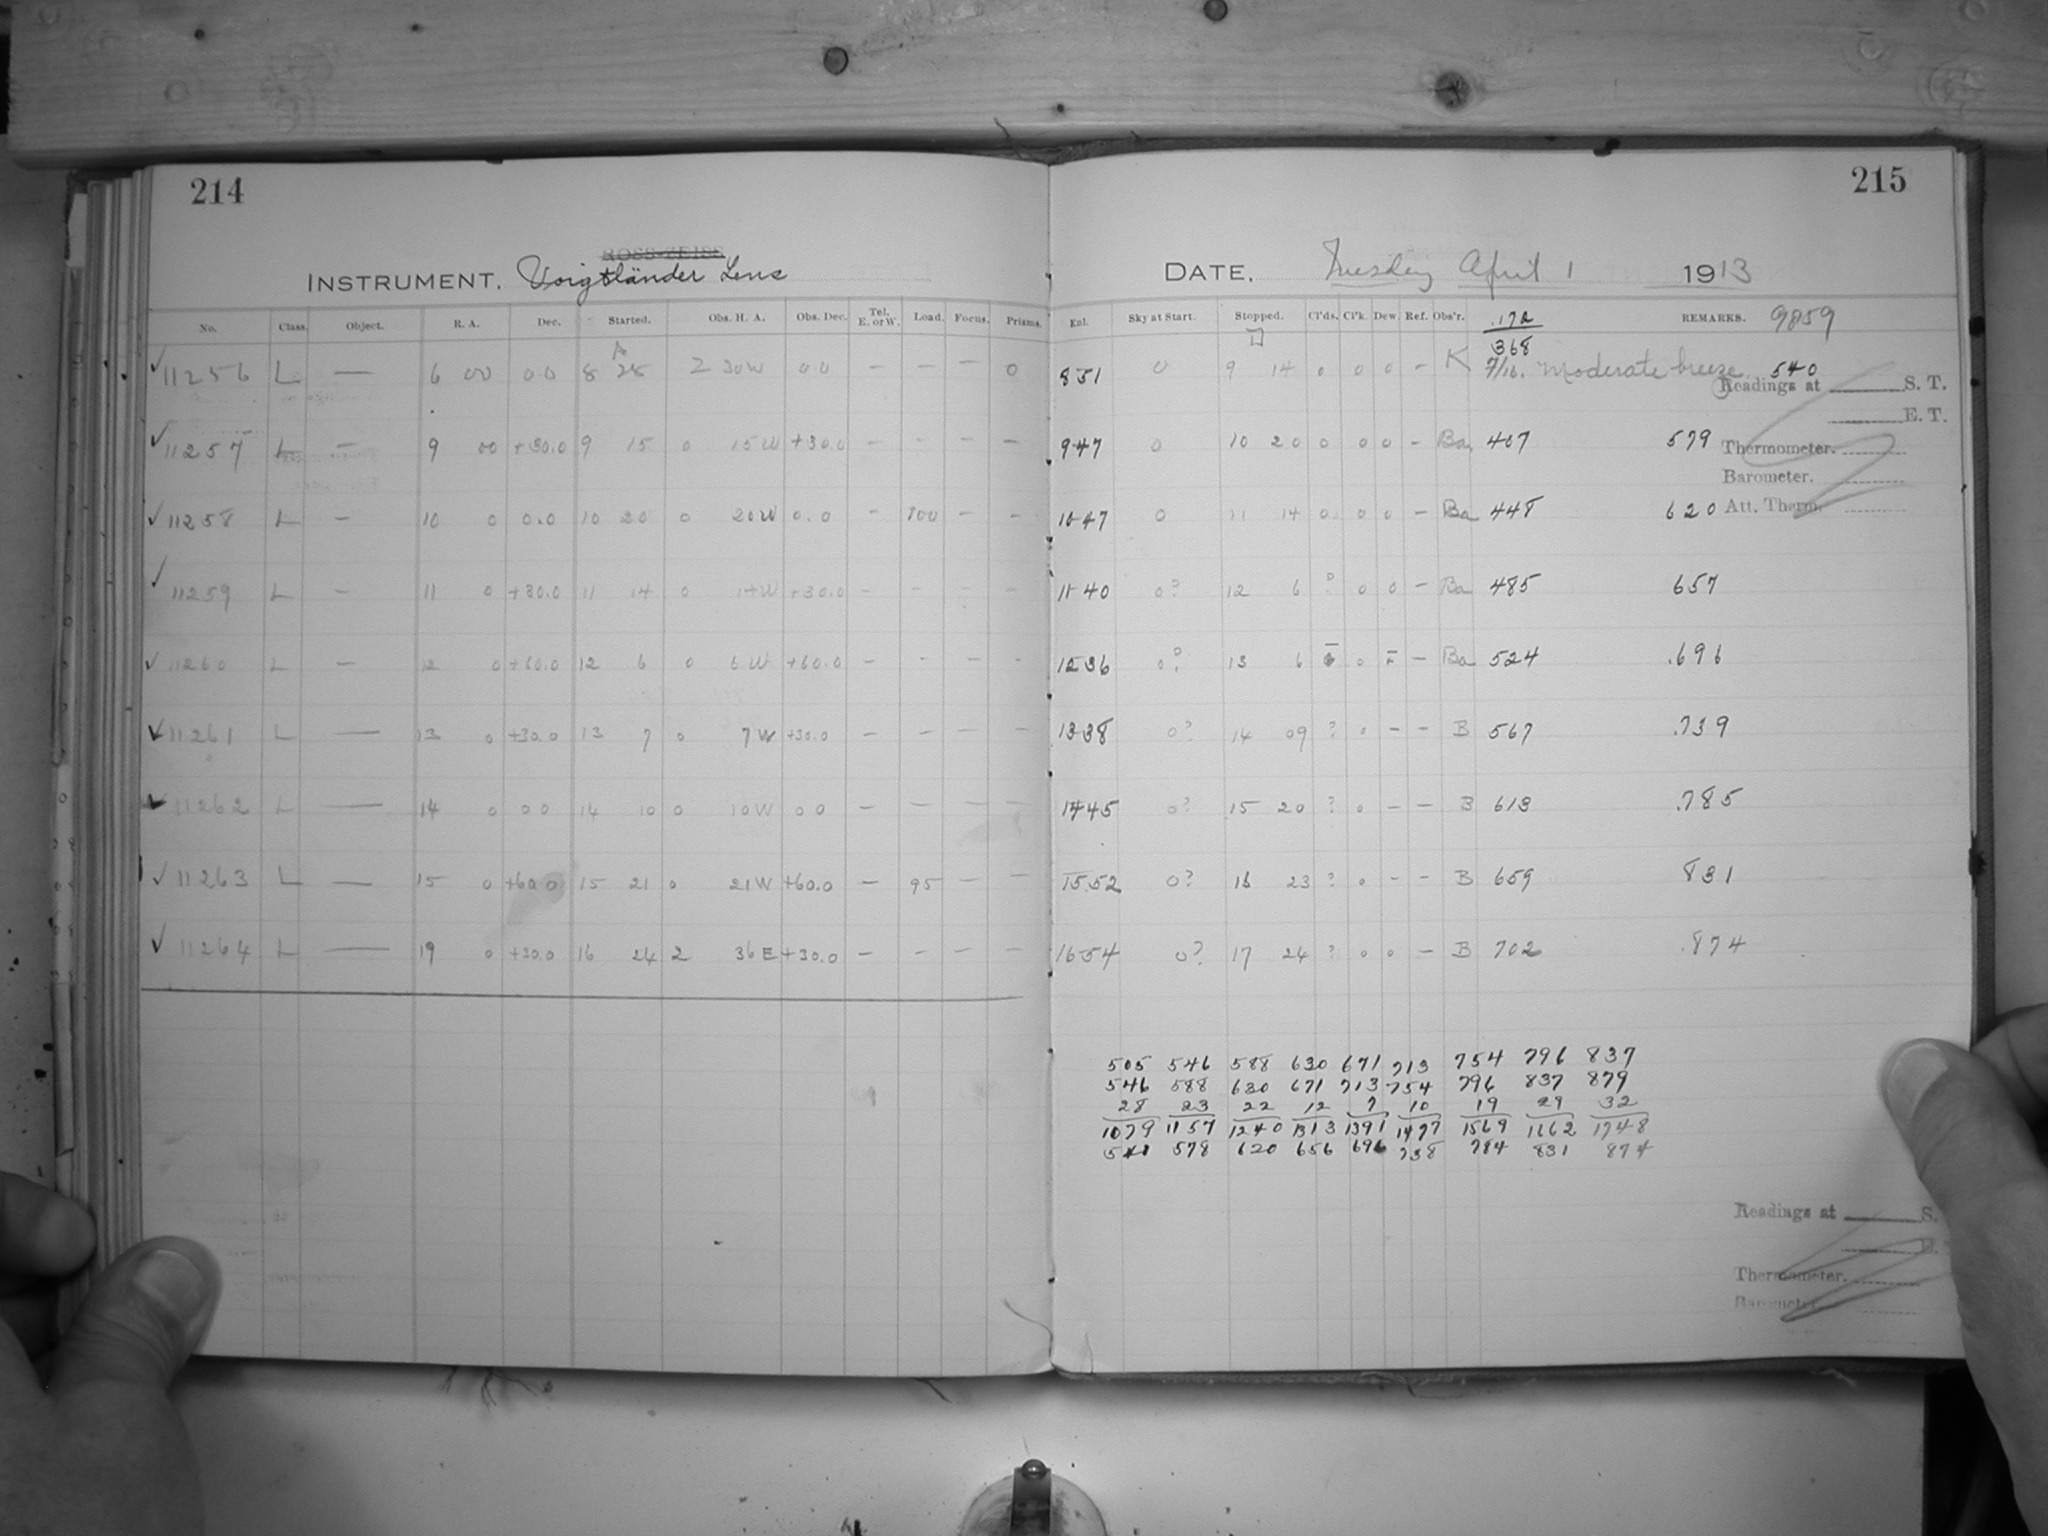 214
ROSS-ZEISS
INSTRUMENT. Voigtländer Lens
No. Class. Object. R. A. Dec. Started. Obs. H. A. Obs. Dec. Tel. E. or W. Load. Focus. Prisms.
✓ 11256 L — 6 00 00 8 28 2 30W 00 — — — 0
✓ 11257 L — 9 00 +30.0 9 15 0 15W +30.0 — — — —
✓ 11258 L — 10 0 0.0 10 20 0 20W 0.0 — 100 — —
✓ 11259 L — 11 0 +30.0 11 14 0 14W +30.0 — — — —
✓ 11260 L — 12 0 +60.0 12 6 0 6W +60.0 — — — —
✓ 11261 L — 13 0 +30.0 13 7 0 7W +30.0 — — — —
✓ 11262 L — 14 0 00 14 10 0 10W 00 — — — —
✓ 11263 L — 15 0 +60.0 15 21 0 21W +60.0 — 95 — —
✓ 11264 L — 19 0 +30.0 16 24 2 36E +30.0 — — — —
215
DATE. Tuesday April 1 1913
Enl. Sky at Start. Stopped. Cl'ds. Cl'k. Dew. Ref. Obs'r. .172 REMARKS. 9859
368
851 0 9 14 0 0 0 — K 7/10. Moderate breeze. 540
Readings at S. T.
E. T.
947 0 10 20 0 0 0 — Ba 407 579
Thermometer.
Barometer.
1047 0 11 14 0 0 0 — Ba 448 620
Att. Therm.
1140 0? 12 6 ? 0 0 — Ba 485 657
1236 0? 13 6 0 — Ba 524 .696
1338 0? 14 09 ? 0 — — B 567 .739
1445 0? 15 20 ? 0 — — B 613 .785
1552 0? 16 23 ? 0 — — B 659 831
1654 0? 17 24 ? 0 0 — B 702 .874
505 546 588 630 671 713 754 796 837
546 588 630 671 713 754 796 837 879
28 23 22 12 7 10 19 29 32
1079 1157 1240 1313 1391 1477 1569 1662 1748
540 578 620 656 696 738 784 831 874
Readings at S.
E.
Thermometer.
Barometer.